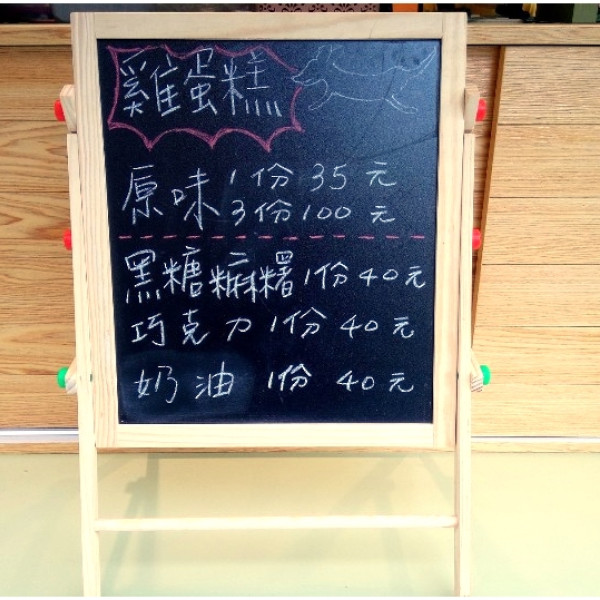 雞蛋糕
原味 1份 35元
3份 100元
黑糖麻糬 1份 40元
巧克力 1份 40元
奶油 1份 40元